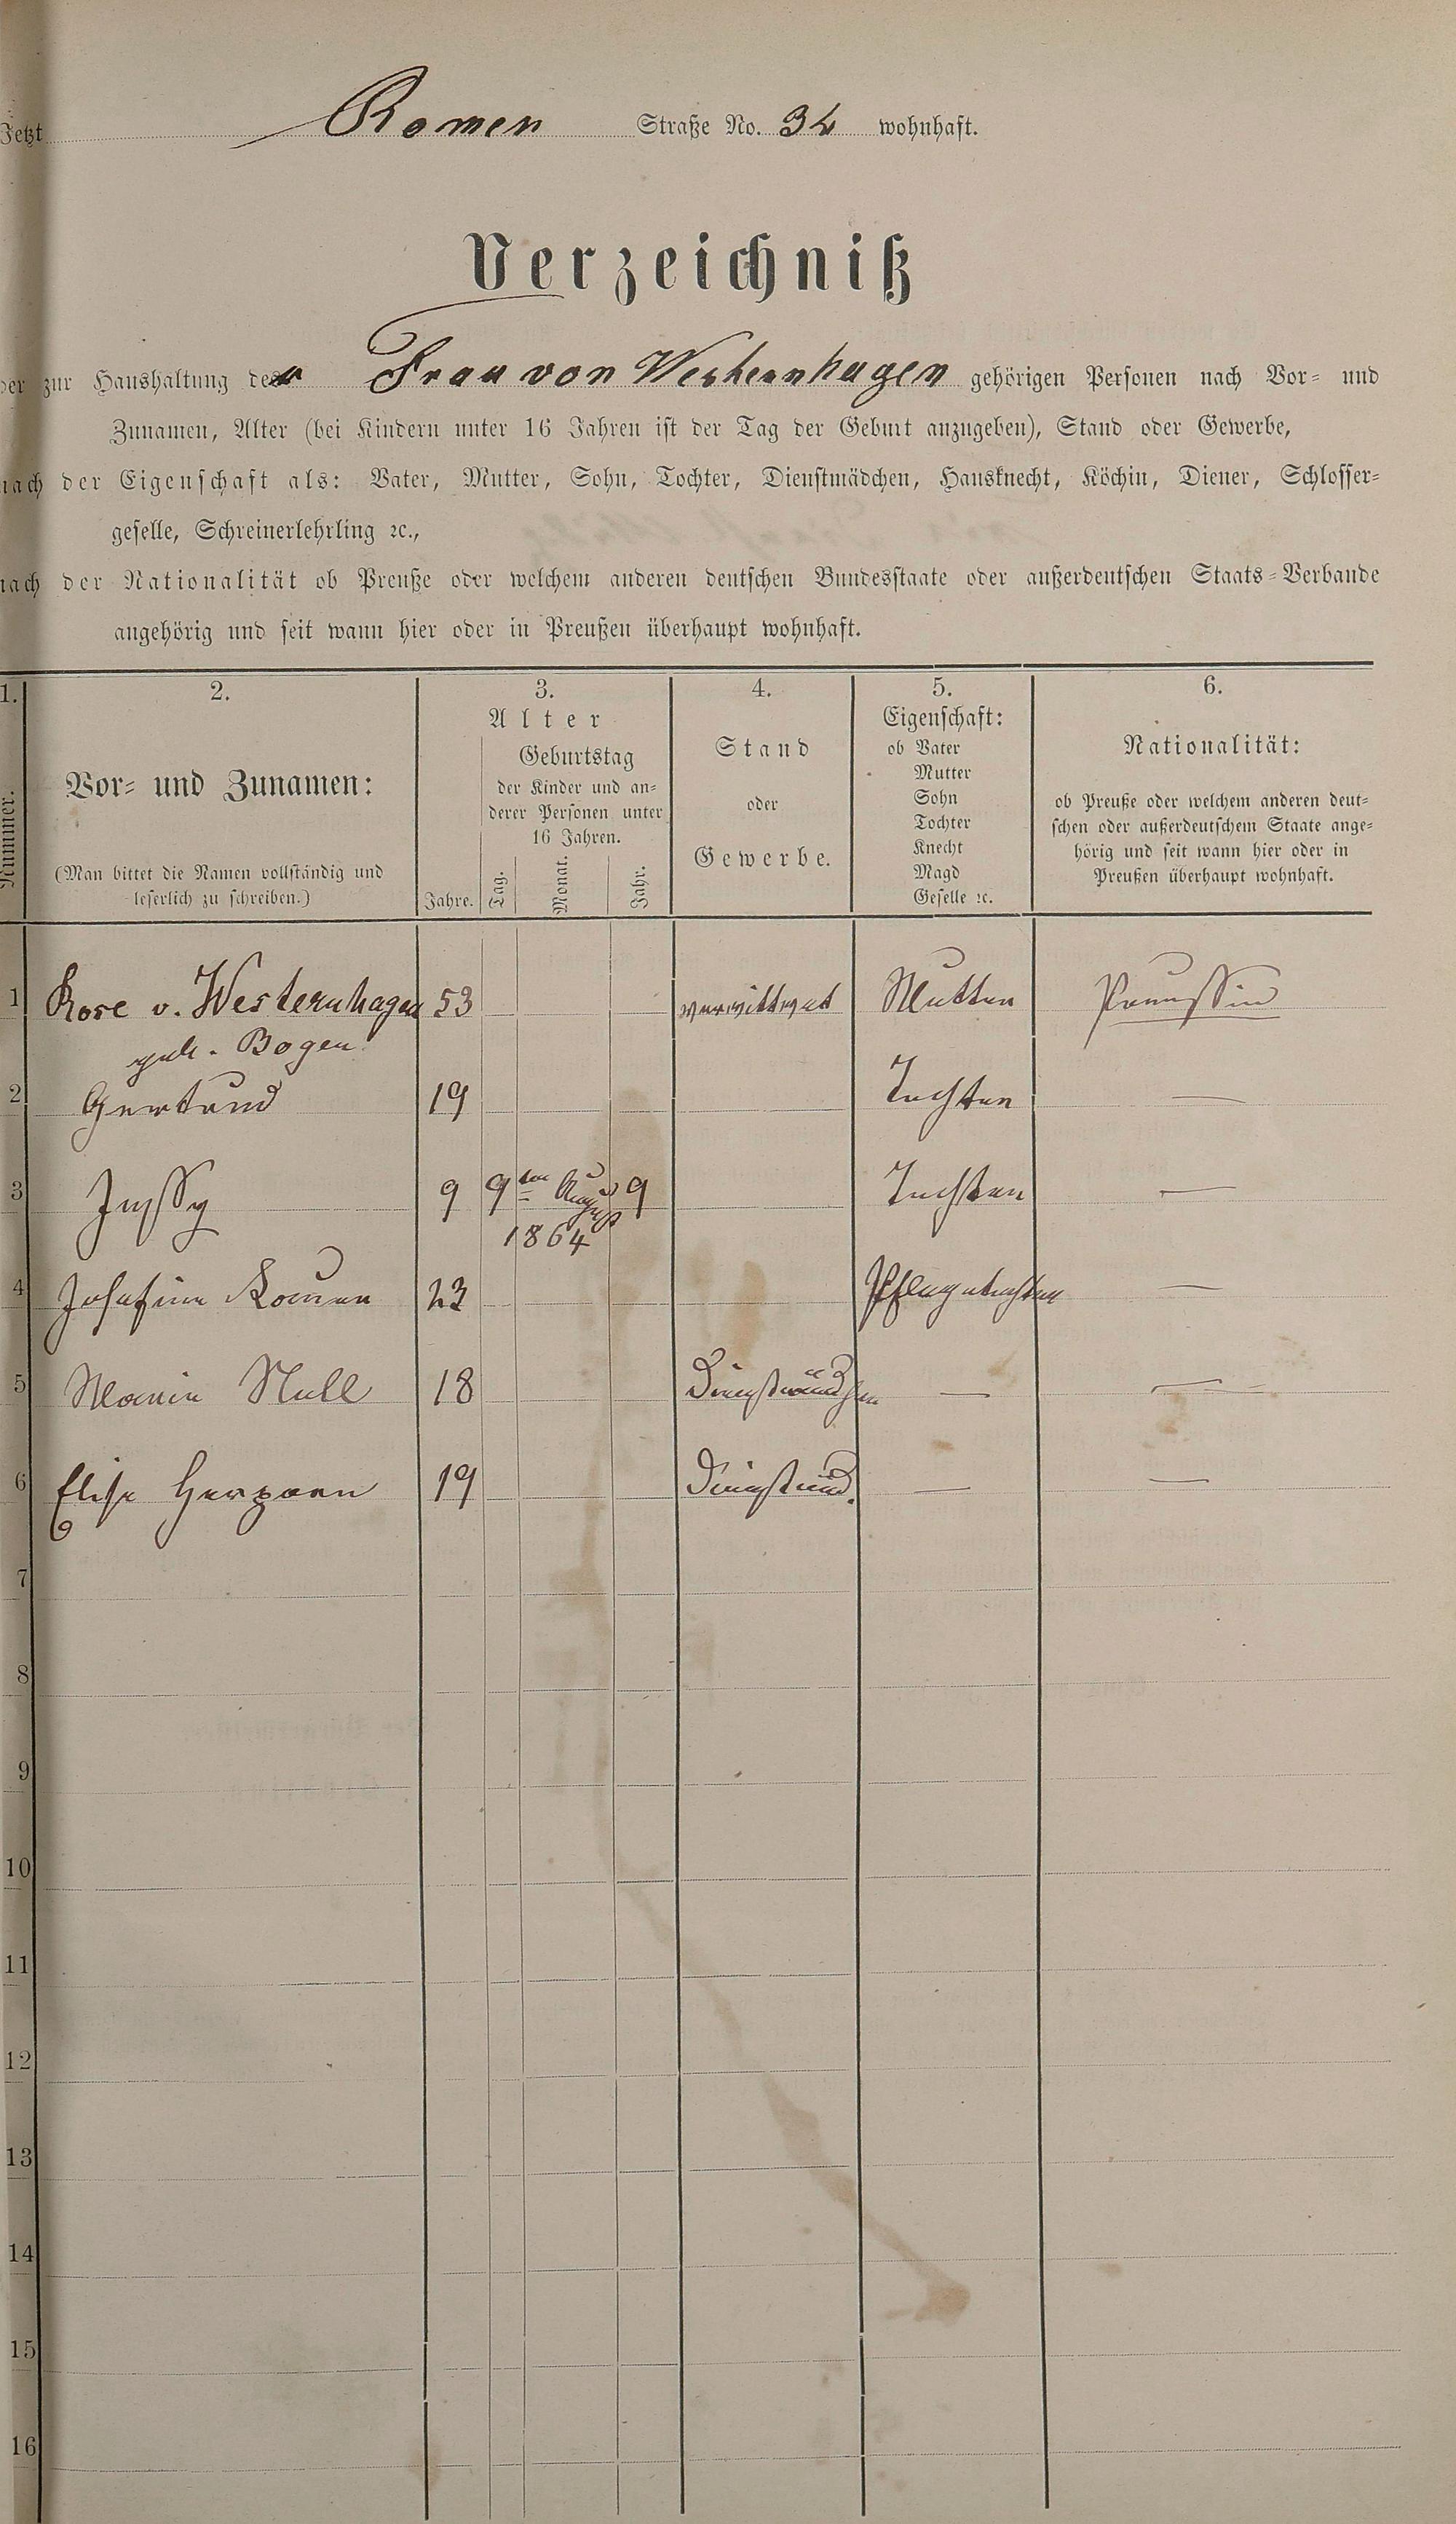 Jetzt Römer Straße No. 32 wohnhaft.
Verzeichniß
der zur Haushaltung der Frau von Westernhagen gehörigen Personen nach Vor- und
Zunamen, Alter (bei Kindern unter 16 Jahren ist der Tag der Geburt anzugeben), Stand oder Gewerbe,
nach der Eigenschaft als: Vater, Mutter, Sohn, Tochter, Dienstmädchen, Hausknecht, Köchin, Diener, Schlosser-
geselle, Schreinerlehrling ꝛc.,
nach der Nationalität ob Preuße oder welchem anderen deutschen Bundesstaate oder außerdeutschen Staats-Verbande
angehörig und seit wann hier oder in Preußen überhaupt wohnhaft.
1. 2. 3. 4. 5. 6.
Nummer.
Vor- und Zunamen:
(Man bittet die Namen vollständig und
leserlich zu schreiben.)
Alter
Jahre.
Geburtstag
der Kinder und an-
derer Personen unter
16 Jahren.
Tag. Monat. Jahr.
Stand
oder
Gewerbe.
Eigenschaft:
ob Vater
Mutter
Sohn
Tochter
Knecht
Magd
Geselle ꝛc.
Nationalität:
ob Preuße oder welchem anderen deut-
schen oder außerdeutschem Staate ange-
hörig und seit wann hier oder in
Preußen überhaupt wohnhaft.
1 Rose v. Westernhagen 53 verwittwet Mutter Preussin
geb. Bogen
2 Gertrud 19 Tochter —
3 Jessy 9 9ten August 9 Tochter —
1864
4 Josefine Römer 23 Pflegetochter —
5 Maria Null 18 Dienstmädchen — —
6 Elise 19 Dienstmd. — —
7
8
9
10
11
12
13
14
15
16